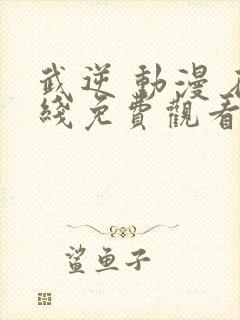 武逆 動漫
綫免費觀看
鯊鱼子